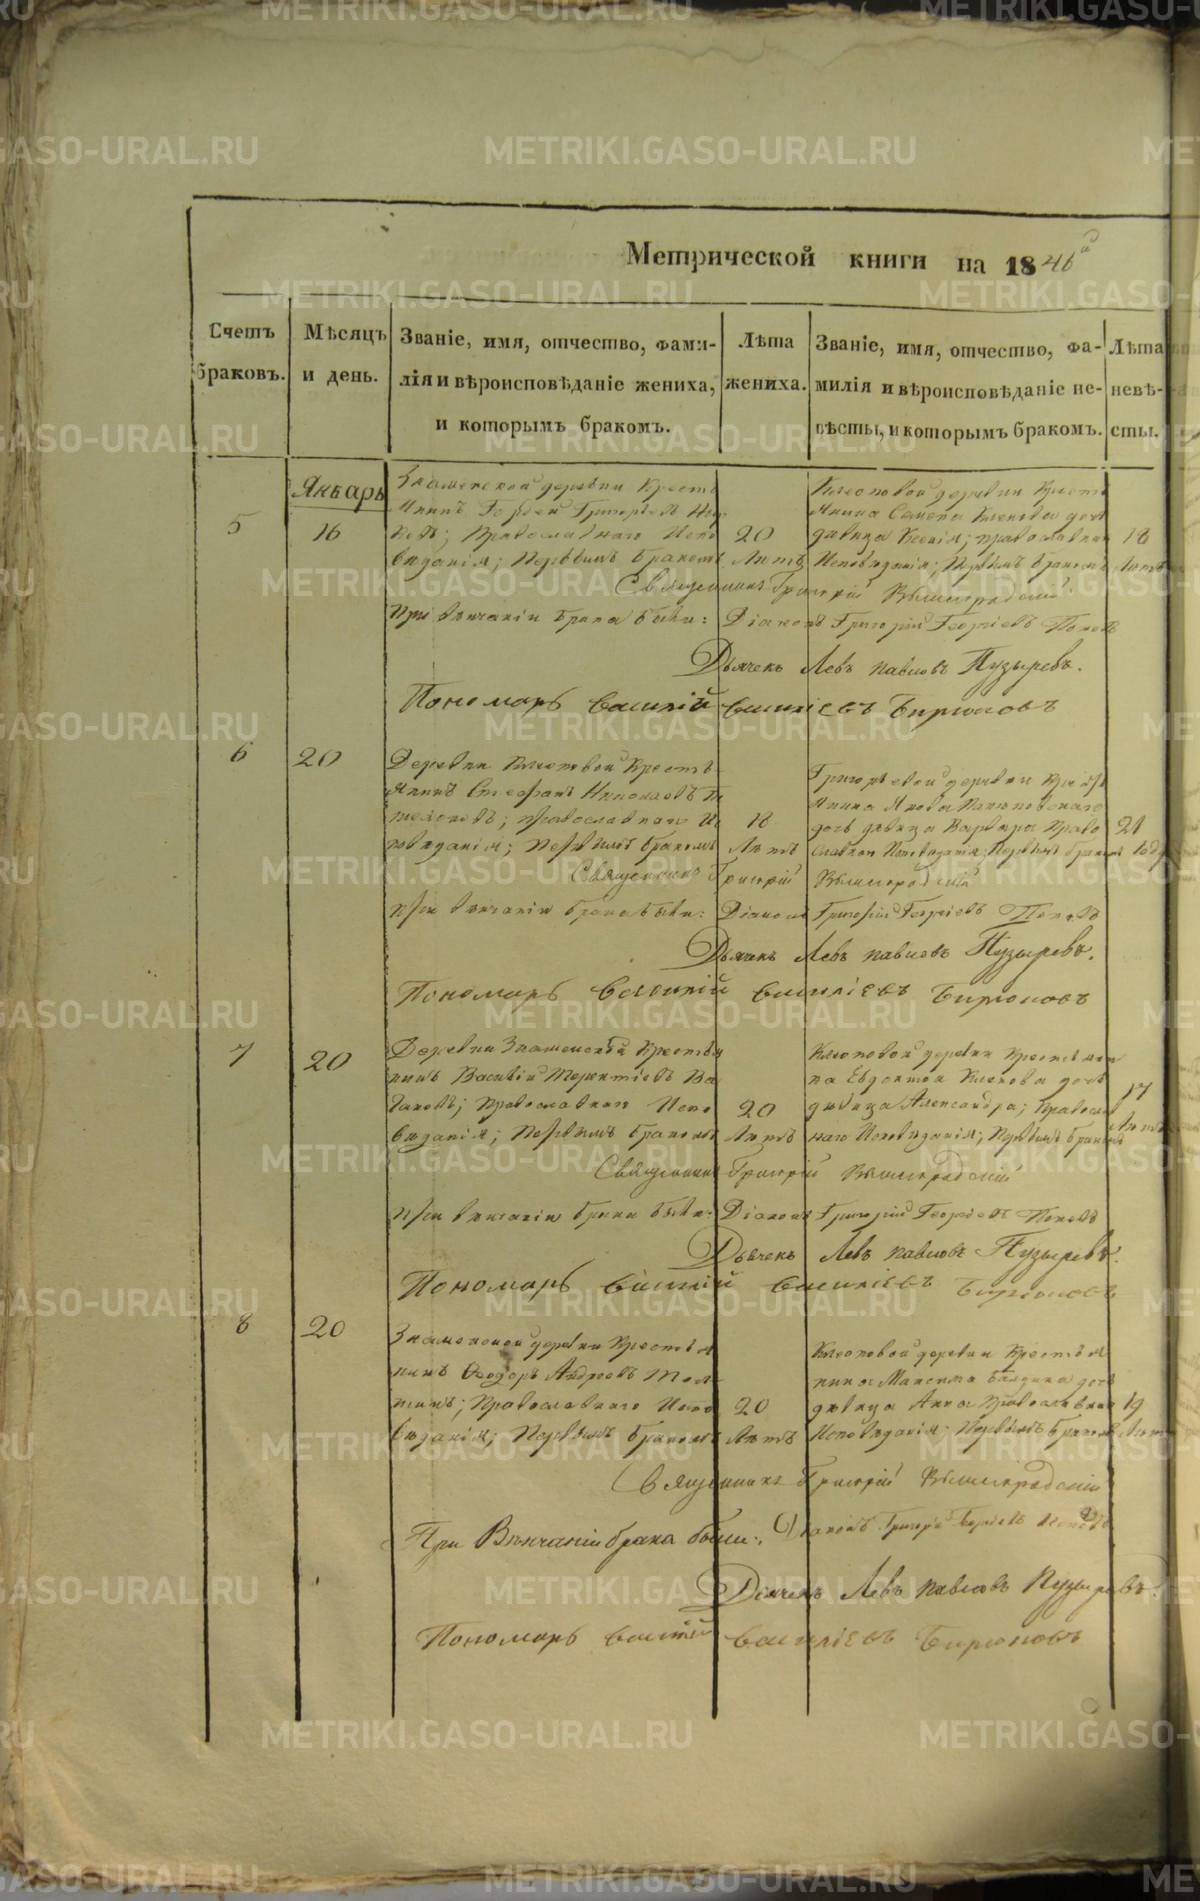 METRIKI.GASO-URAL.RU
Метрической книги на 1846
Счетъ браковъ.
Мѣсяцъ и день.
Званіе, имя, отчество, фами-
лія и вѣроисповѣданіе жениха,
и которымъ бракомъ.
Лѣта
жениха.
Званіе, имя, отчество, фа-
милія и вѣроисповѣданіе не-
вѣсты, и которымъ бракомъ.
Лѣта
невѣ-
сты.
Январь
5
16
Знаменской деревни Кресть
янинъ Григорьевъ
Православнаго Испо
вѣданія; Первымъ бракомъ
20
Лѣтъ
Клюповой деревни Кресть
янина Семена дочь
дѣвица Ксенія; православнаго
Исповѣданія; Первымъ бракомъ
18
Лѣтъ
Священникъ Григорій Вышеградскій
При вѣнчаніи брака были: Діаконъ Григорій Георгіевъ Поповъ
Дьячекъ Левъ павловъ Пузыревъ.
Пономарь василій василіевъ Бирюковъ
6
20
Деревни Крестъ
янинъ Стефанъ Николаевъ
православнаго Ис
повѣданія; Первымъ бракомъ
18
Лѣтъ
Григорьевой деревни Крестъ
янина Якова
дочь дѣвица Варвара Право
славнаго Исповѣданія; Первымъ бракомъ
21
года
Священникъ Григорій Вышеградскій
при вѣнчаніи брака были: Діаконъ Григорій Георгіевъ Поповъ
Дьячекъ Левъ павловъ Пузыревъ.
Пономарь василій василіевъ Бирюковъ
7
20
Деревни Знаменской Крестья
нинъ Василій Терентіевъ
Православнаго Испо
вѣданія; Первымъ бракомъ
20
Лѣтъ
Клюповой деревни Крестьяни
на дочь
дѣвица Александра; Православ
наго Исповѣданія; Первымъ бракомъ
17
Лѣтъ
Священникъ Григорій Вышеградскій
при вѣнчаніи брака были: Діаконъ Григорій Георгіевъ Поповъ
Дьячекъ Левъ павловъ Пузыревъ.
Пономарь василій василіевъ Бирюковъ
8
20
Знаменской деревни Крестья
нинъ Ѳеодоръ Андреевъ
Православнаго Испо
вѣданія; Первымъ бракомъ
20
Лѣтъ
Клюповой деревни Крестья
нина Максима дочь
дѣвица Анна Православнаго
Исповѣданія; Первымъ бракомъ
19
Лѣтъ
Священникъ Григорій Вышеградскій
При Вѣнчаніи брака были: Діаконъ Григорій Георгіевъ Поповъ
Дьячекъ Левъ павловъ Пузыревъ.
Пономарь василій василіевъ Бирюковъ